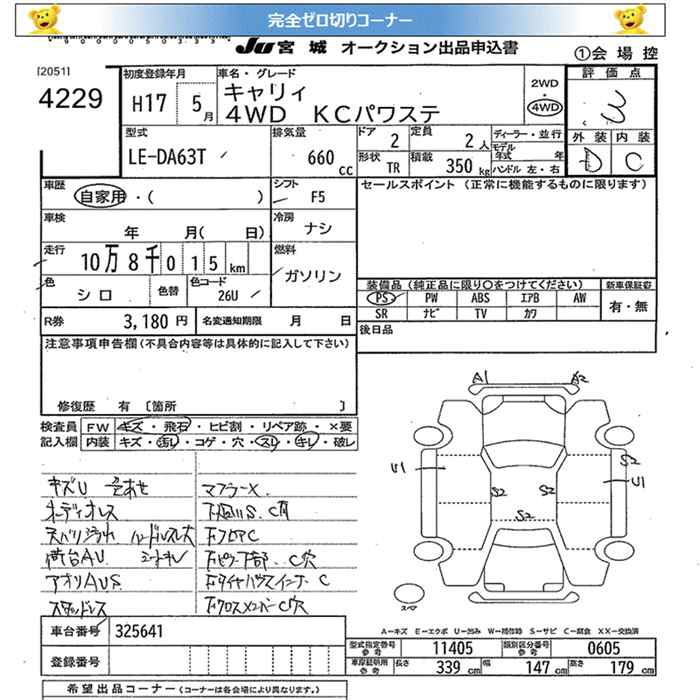 完全ゼロ切りコーナー
JU宮城 オークション出品申込書
①会場控
[2051]
4229
初度登録年月
H17 5月
車名・グレード
キャリィ
4WD KCパワステ
2WD
・
4WD
評価点
3
外装 内装
D C
型式
LE-DA63T
排気量
660 cc
ドア 2
定員 2人
形状 TR
積載 350kg
ディーラー・並行
モデル年式 年
ハンドル 左・右
車歴
自家用・( )
シフト F5
セールスポイント (正常に機能するものに限ります)
車検
年 月( 日)
冷房 ナシ
走行
10万8千015km
燃料
ガソリン
色
シロ
色替
色コード
26U
装備品 (純正品に限り○をつけてください)
新車保証書
PS PW ABS エアB AW
SR ナビ TV カワ
有・無
R券 3,180円
名変通知期限 月 日
後日品
注意事項申告欄 (不具合内容等は具体的に記入して下さい)
修復歴 有 〔箇所 〕
検査員記入欄
FW キズ・飛石・ヒビ割・リペア跡・×要
内装 キズ・汚れ・コゲ・穴・スレ・キレ・破レ
A1 A2
U1
S2 S2
S2
S2
S1
キズU 色あせ
オーディオレス
天バリ汚れ ハンドルスレ大
荷台AU シートキレ
アオリAUS
スタッドレス
マフラーX
下回りS C有
下フロアC
下ピラー下部 C穴
下タイヤハウスインナーC
下クロスメンバーC穴
スペア
A-キズ E-エクボ U-凹み W-補修跡 S-サビ C-腐食 XX-交換済
車台番号 325641
登録番号
型式指定番号 参考 11405
類別区分番号 参考 0605
車庫証明用 参考 長さ 339cm 幅 147cm 高さ 179cm
希望出品コーナー (コーナーは各会場により異なります。)